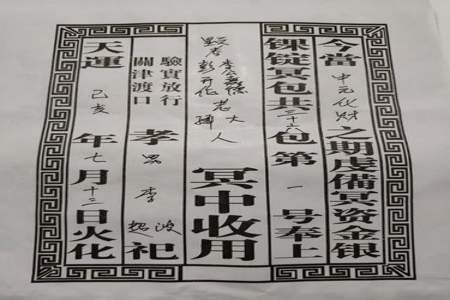 今當中元化財之期虔備冥資金銀
錁錠冥包共三十六包第一號奉上
考李公老大人
冥中收用
驗實放行
關津渡口
孝男李波超祀
天運己亥年七月十二日火化